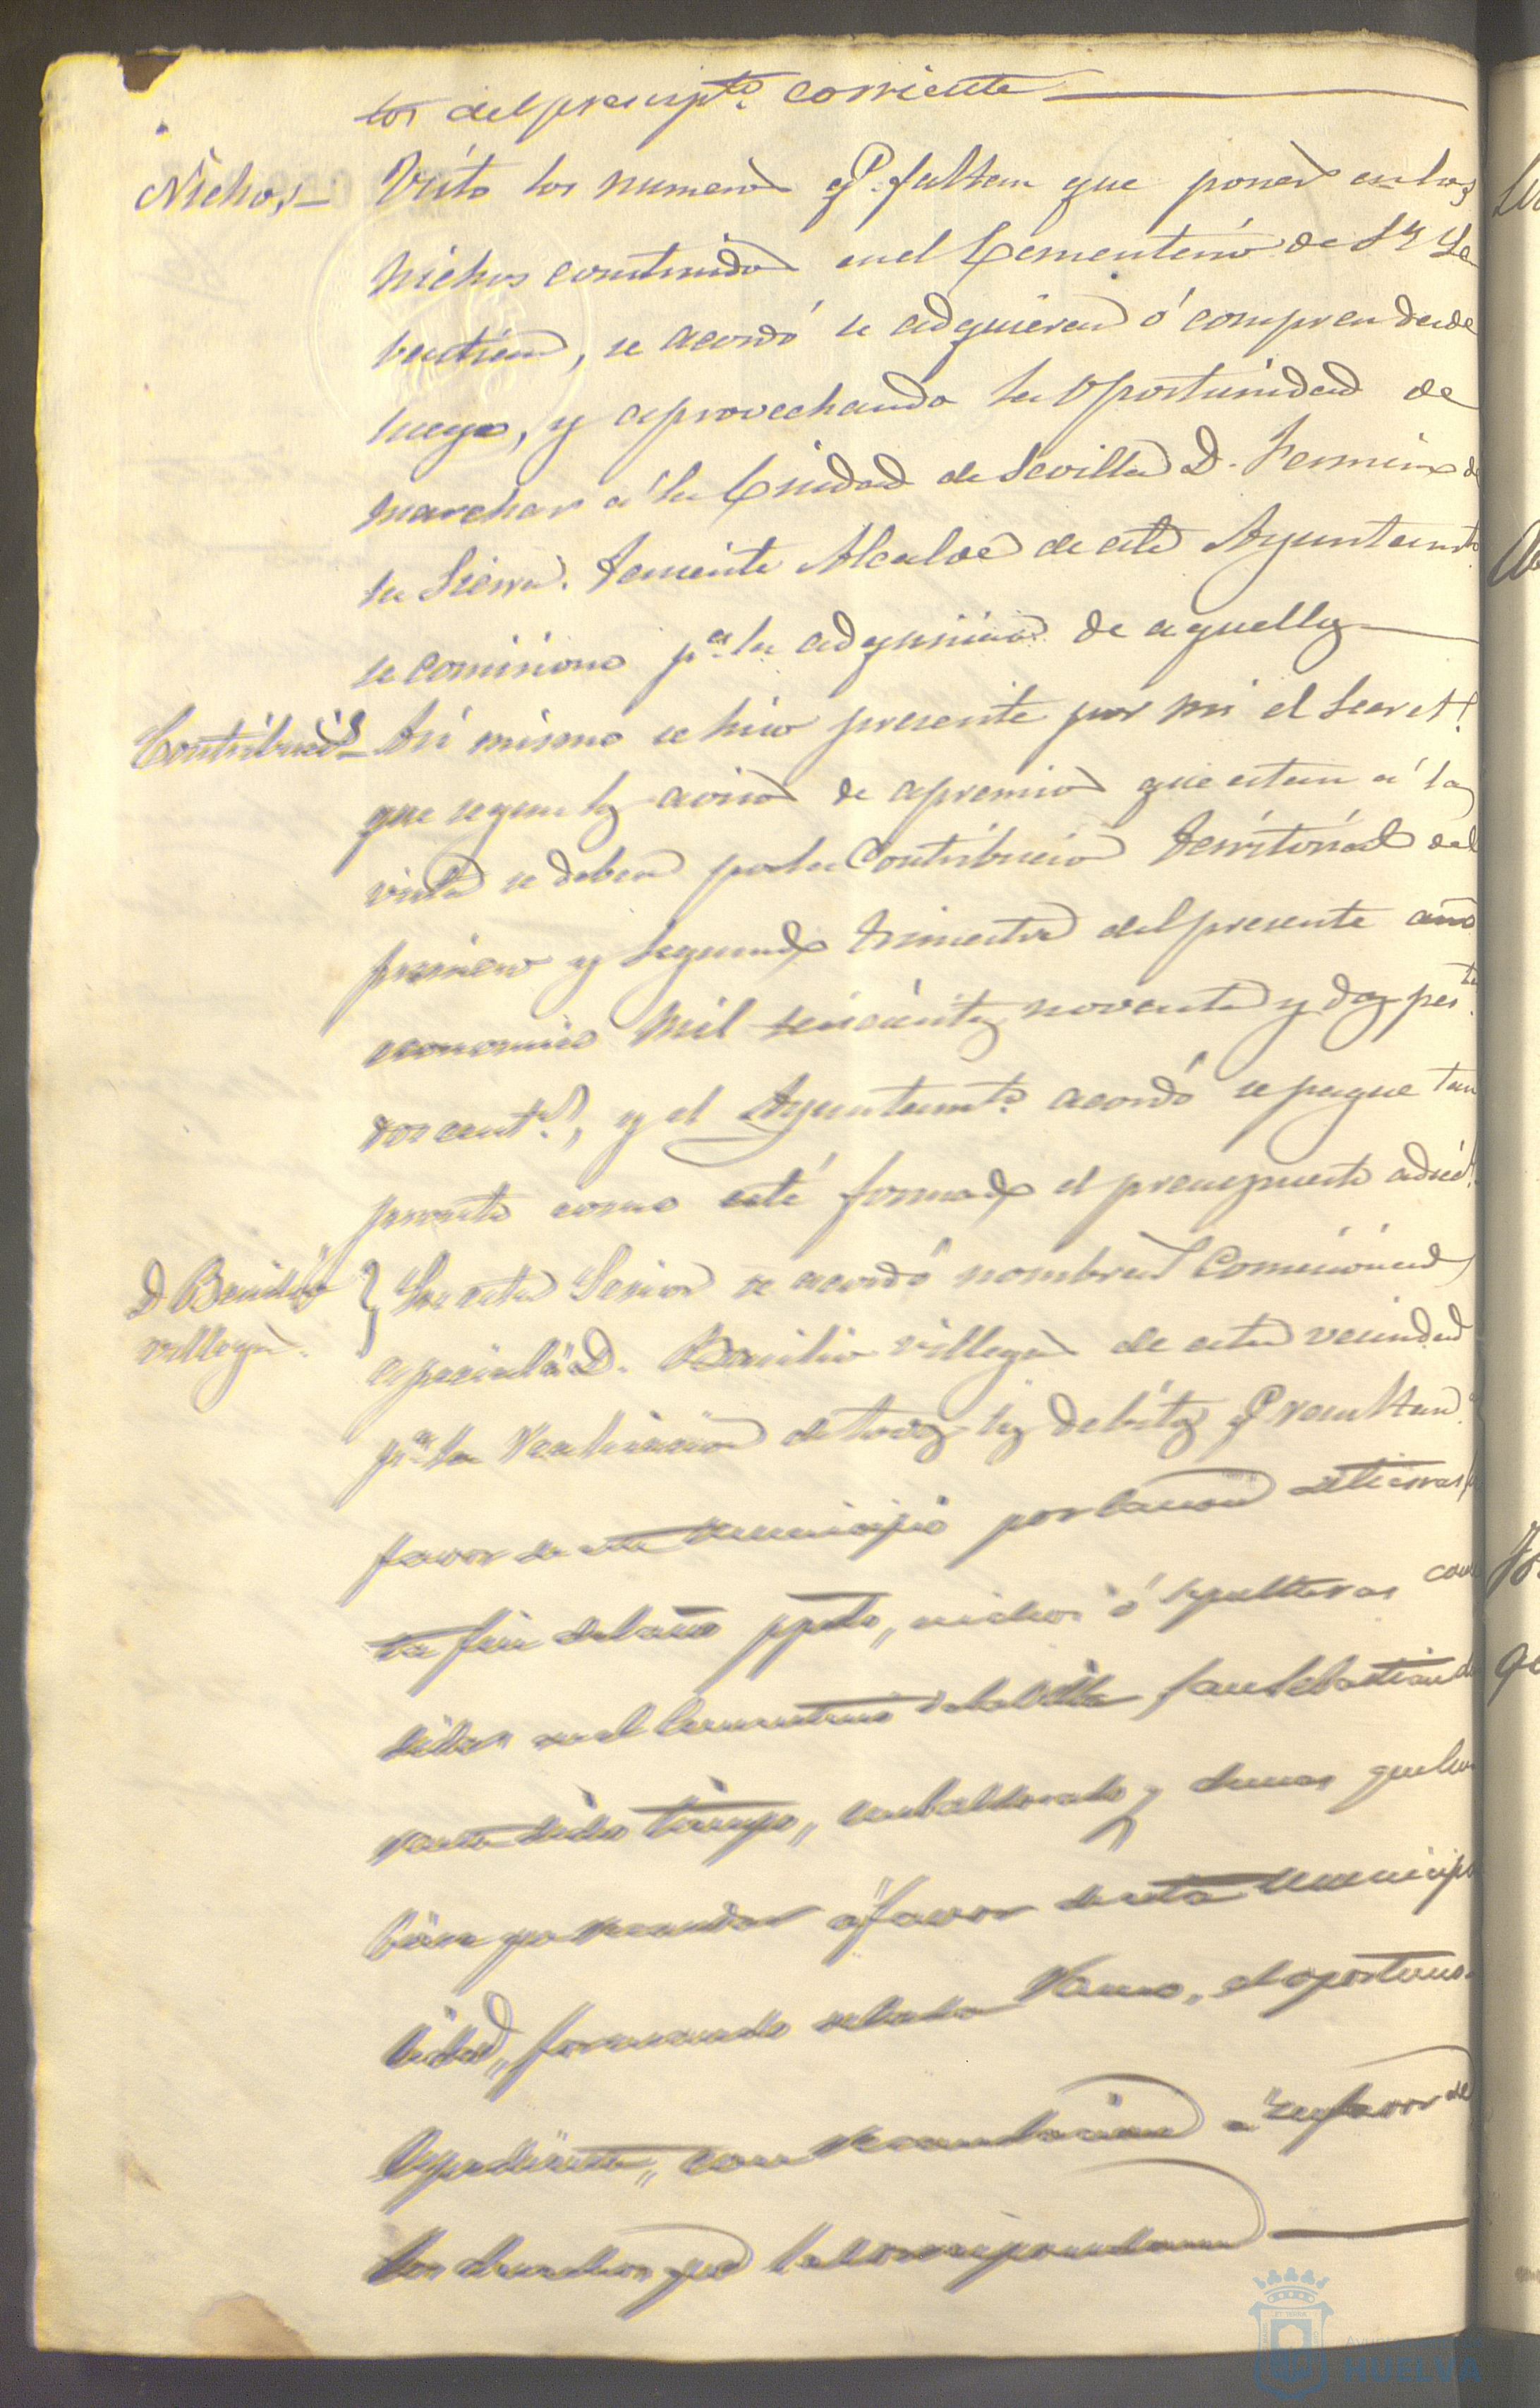 tos del presupto. corriente
Nichos Visto los numeros qe. faltan que poner en los
nichos construidos en el Cementerio de Sn. Se
bastian, se acordó se adquieran ó compren desde
luego, y aprovechando la oportunidad de
marchar á la Ciudad de Sevilla D. Fermin de
la Sierra. Teniente Alcalde de este Ayuntamto
se comisiona pa. la adquisicion de aquellos
Contribucion Asi mismo se hizo presente por mi el Secret.
que segun los avisos de apremios que estan á la
vista se deben por la Contribucion Territorial del
primero y segundo trimestre del presente año
economico mil seiscientas noventa y dos pests.
dos cents., y el Ayuntamto. acordó se pague tan
pronto como esté formado el presupuesto adicl.
D Basilio
Villegas. } En esta Sesion se acordó nombrar Comisionado
especial á D. Basilio Villegas de esta vecindad
pa. la realizacion de todos los debitos qe. resultan
favor de este Municipio por de tierras
ta fin del año ppdo, nichos ó sepulturas conce
didas en el Cementerio de la Villa San Sebastian de
dicho tiempo, embaldosado y demas que
bien por recaudar á favor de esta Municipa
lidad, formando de cada Ramo, el oportuno
Expediente, con recaudacion á su favor de
los derechos que le correspondan
HUELVA